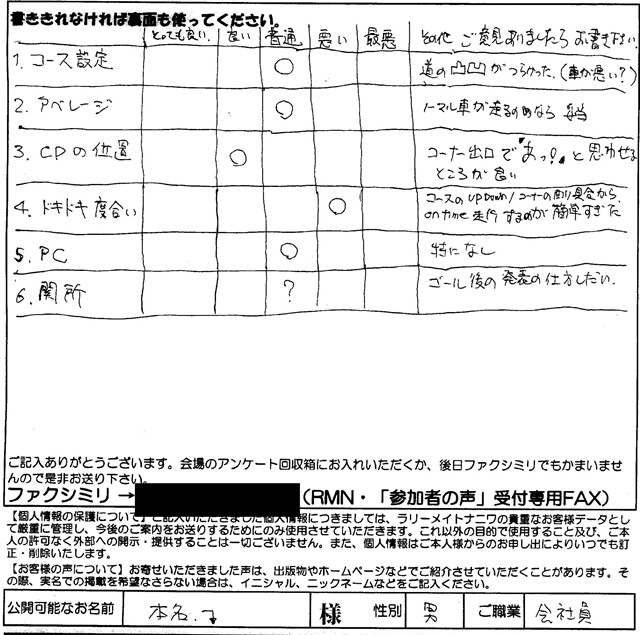 書ききれなければ裏面も使ってください。
とっても良い 良い 普通 悪い 最悪 その他 ご意見ありましたらお書き下さい
1. コース設定 ○ 道の凸凹がつらかった。(車が悪い?)
2. アベレージ ○ ノーマル車が走るのなら 妥当
3. CPの位置 ○ コーナー出口で「あっ!」と思わせる
ところが良い
4. ドキドキ度合い ○ コースのUPDown/コーナーの割り具合から、
on time 走行するのが簡単すぎた
5. PC ○ 特になし
6. 関所 ? ゴール後の発表の仕方しだい。
ご記入ありがとうございます。会場のアンケート回収箱にお入れいただくか、後日ファクシミリでもかまいませ
んので是非お送り下さい。
ファクシミリ→ (RMN・「参加者の声」受付専用FAX)
【個人情報の保護について】ご記入いただきました個人情報につきましては、ラリーメイトナニワの貴重なお客様データとし
て厳重に管理し、今後のご案内をお送りするためにのみ使用させていただきます。これ以外の目的で使用すること及び、ご本
人の許可なく外部への開示・提供することは一切ございません。また、個人情報はご本人様からのお申し出によりいつでも訂
正・削除いたします。
【お客様の声について】お寄せいただきました声は、出版物やホームページなどでご紹介させていただくことがあります。そ
の際、実名での掲載を希望なさらない場合は、イニシャル、ニックネームなどをご記入ください。
公開可能なお名前 本名 様 性別 男 ご職業 会社員